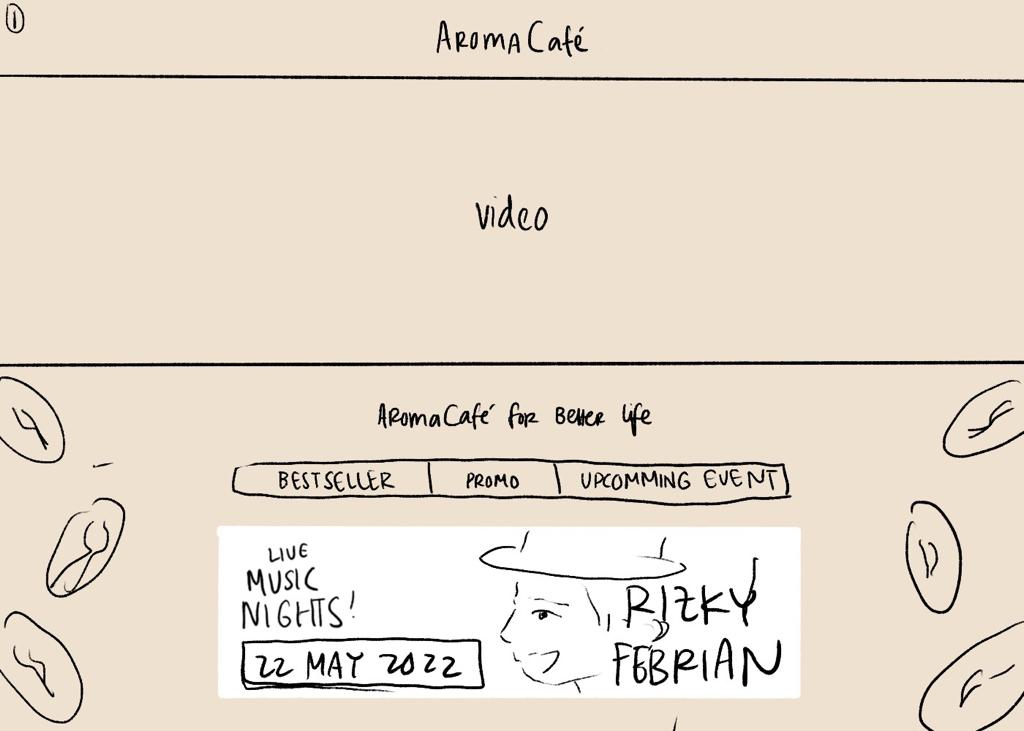 1
AROMA Café
video
AROMA Café for Better life
BESTSELLER PROMO UPCOMMING EVENT
LIVE
MUSIC
NIGHTS!
22 MAY 2022
RIZKY
FEBRIAN